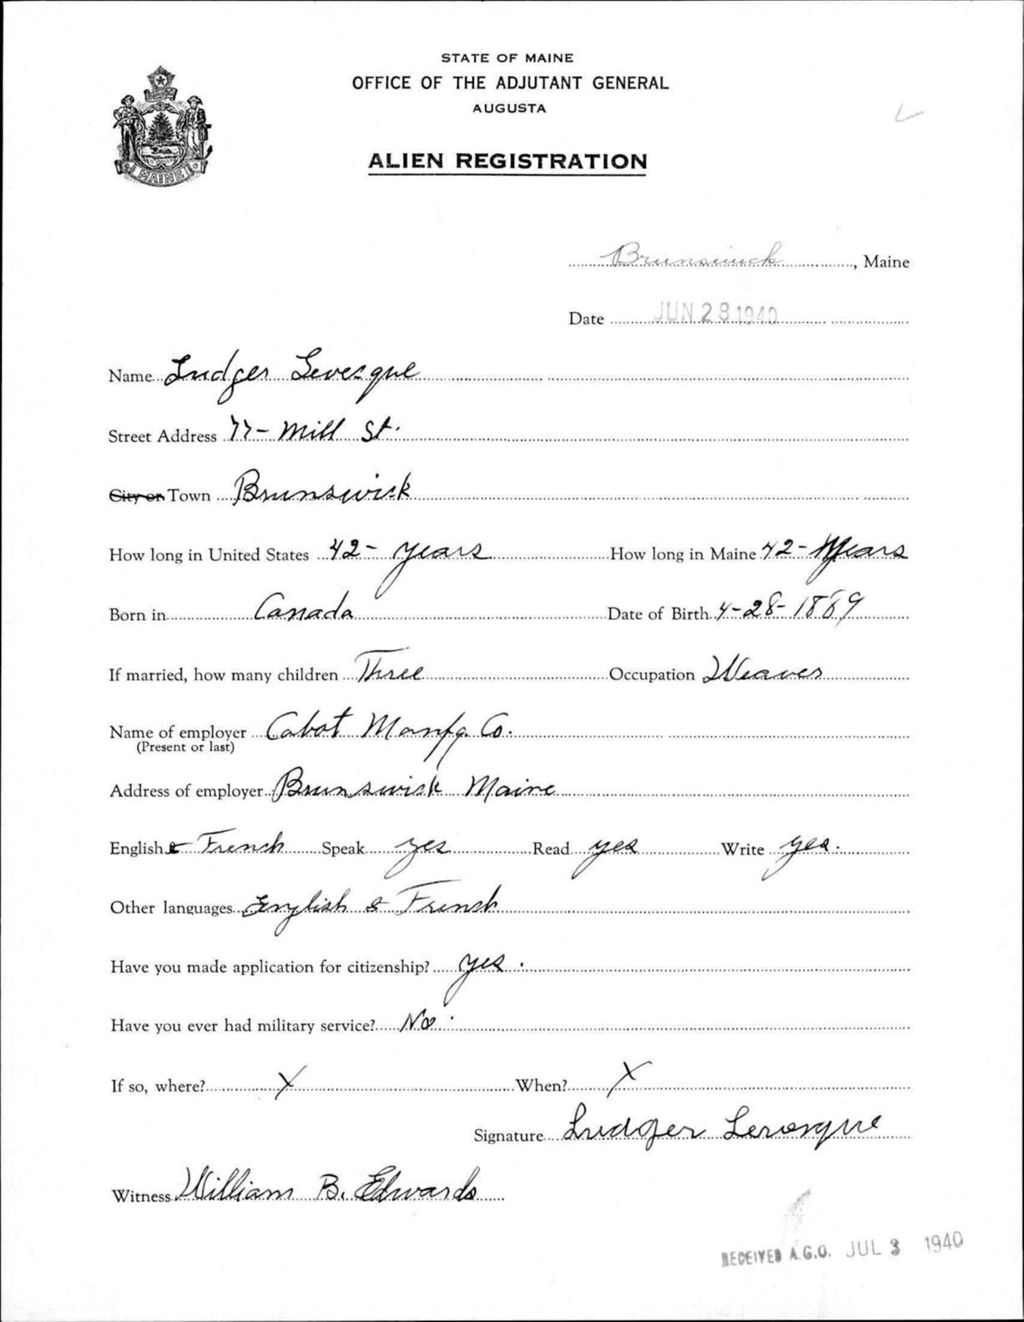 STATE OF MAINE
OFFICE OF THE ADJUTANT GENERAL
AUGUSTA
MAINE
ALIEN REGISTRATION
Brunswick, Maine
Date JUN 28 1940
Name Ludger Levesque
Street Address 77- Mill St.
City or Town Brunswick
How long in United States 42- years How long in Maine 42- years
Born in Canada Date of Birth 4-28-1889
If married, how many children Three Occupation Weaver
Name of employer Cabot Manfg. Co.
(Present or last)
Address of employer Brunswick Maine
English & French Speak yes Read yes Write yes.
Other languages English & French
Have you made application for citizenship? yes.
Have you ever had military service? No.
If so, where? X When? X
Signature Ludger Levesque
Witness William B. Edwards
RECEIVED A.G.O. JUL 3 1940